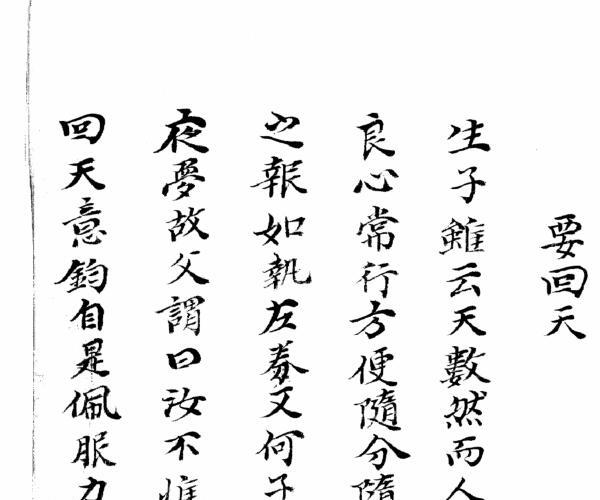 要回天
生子雖云天數然而人
良心常行方便隨分隨
之報如執左券又何子
夜夢故父謂曰汝不惟
回天意鈞自是佩服力